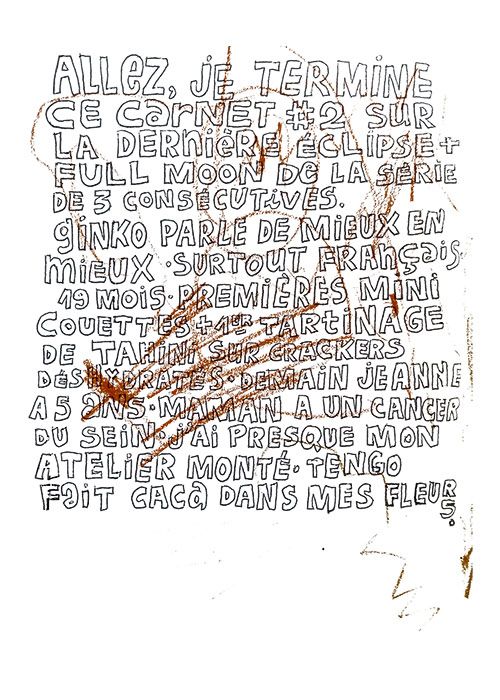 ALLEZ, JE TERMINE
CE CARNET #2 SUR
LA DERNIÈRE ÉCLIPSE +
FULL MOON DE LA SÉRIE
DE 3 CONSÉCUTIVES.
GINKO PARLE DE MIEUX EN
MIEUX · SURTOUT FRANÇAIS.
19 MOIS · PREMIÈRES MINI
COUETTES + 1ER TARTINAGE
DE TAHINI SUR CRACKERS
DÉSHYDRATÉS · DEMAIN JEANNE
A 5 ANS · MAMAN A UN CANCER
DU SEIN · J'AI PRESQUE MON
ATELIER MONTÉ · TENGO
FAIT CACA DANS MES FLEURS.